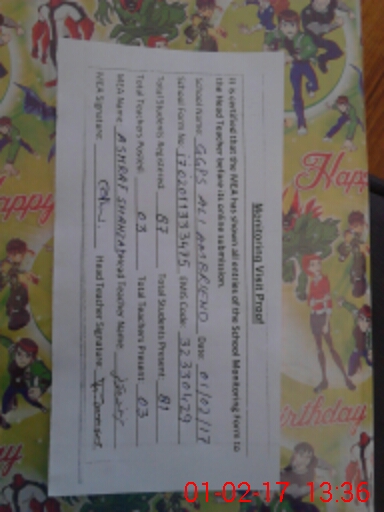 Monitoring Visit Proof
It is certified that the MEA has shown all entries of the School Monitoring Form to
the Head Teacher before its online submission.
School Name: GGPS ALI AMBREND Date: 01/02/17
School Form No: EMIS Code: 32330429
Total Students Registered: 87 Total Students Present: 81
Total Teachers Posted: 03 Total Teachers Present: 03
MEA Name: ASHRAF Head Teacher Name:
MEA Signature: Head Teacher Signature:
Happy
Birthday
appy
01-02-17 13:36